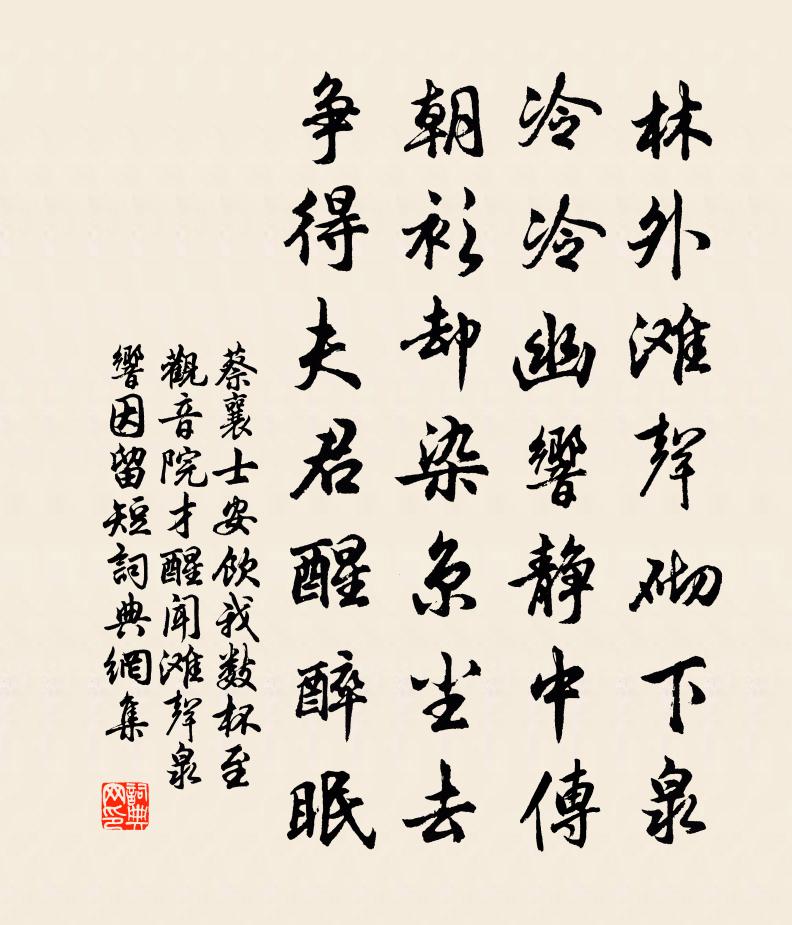 林外滩聲砌下泉
冷冷幽響静中傳
朝衫却染京尘去
争得夫君醒醉眠
蔡襄士安飲我数杯至
觀音院才醒闻滩聲泉
響因留短詞典網集
詞典网印